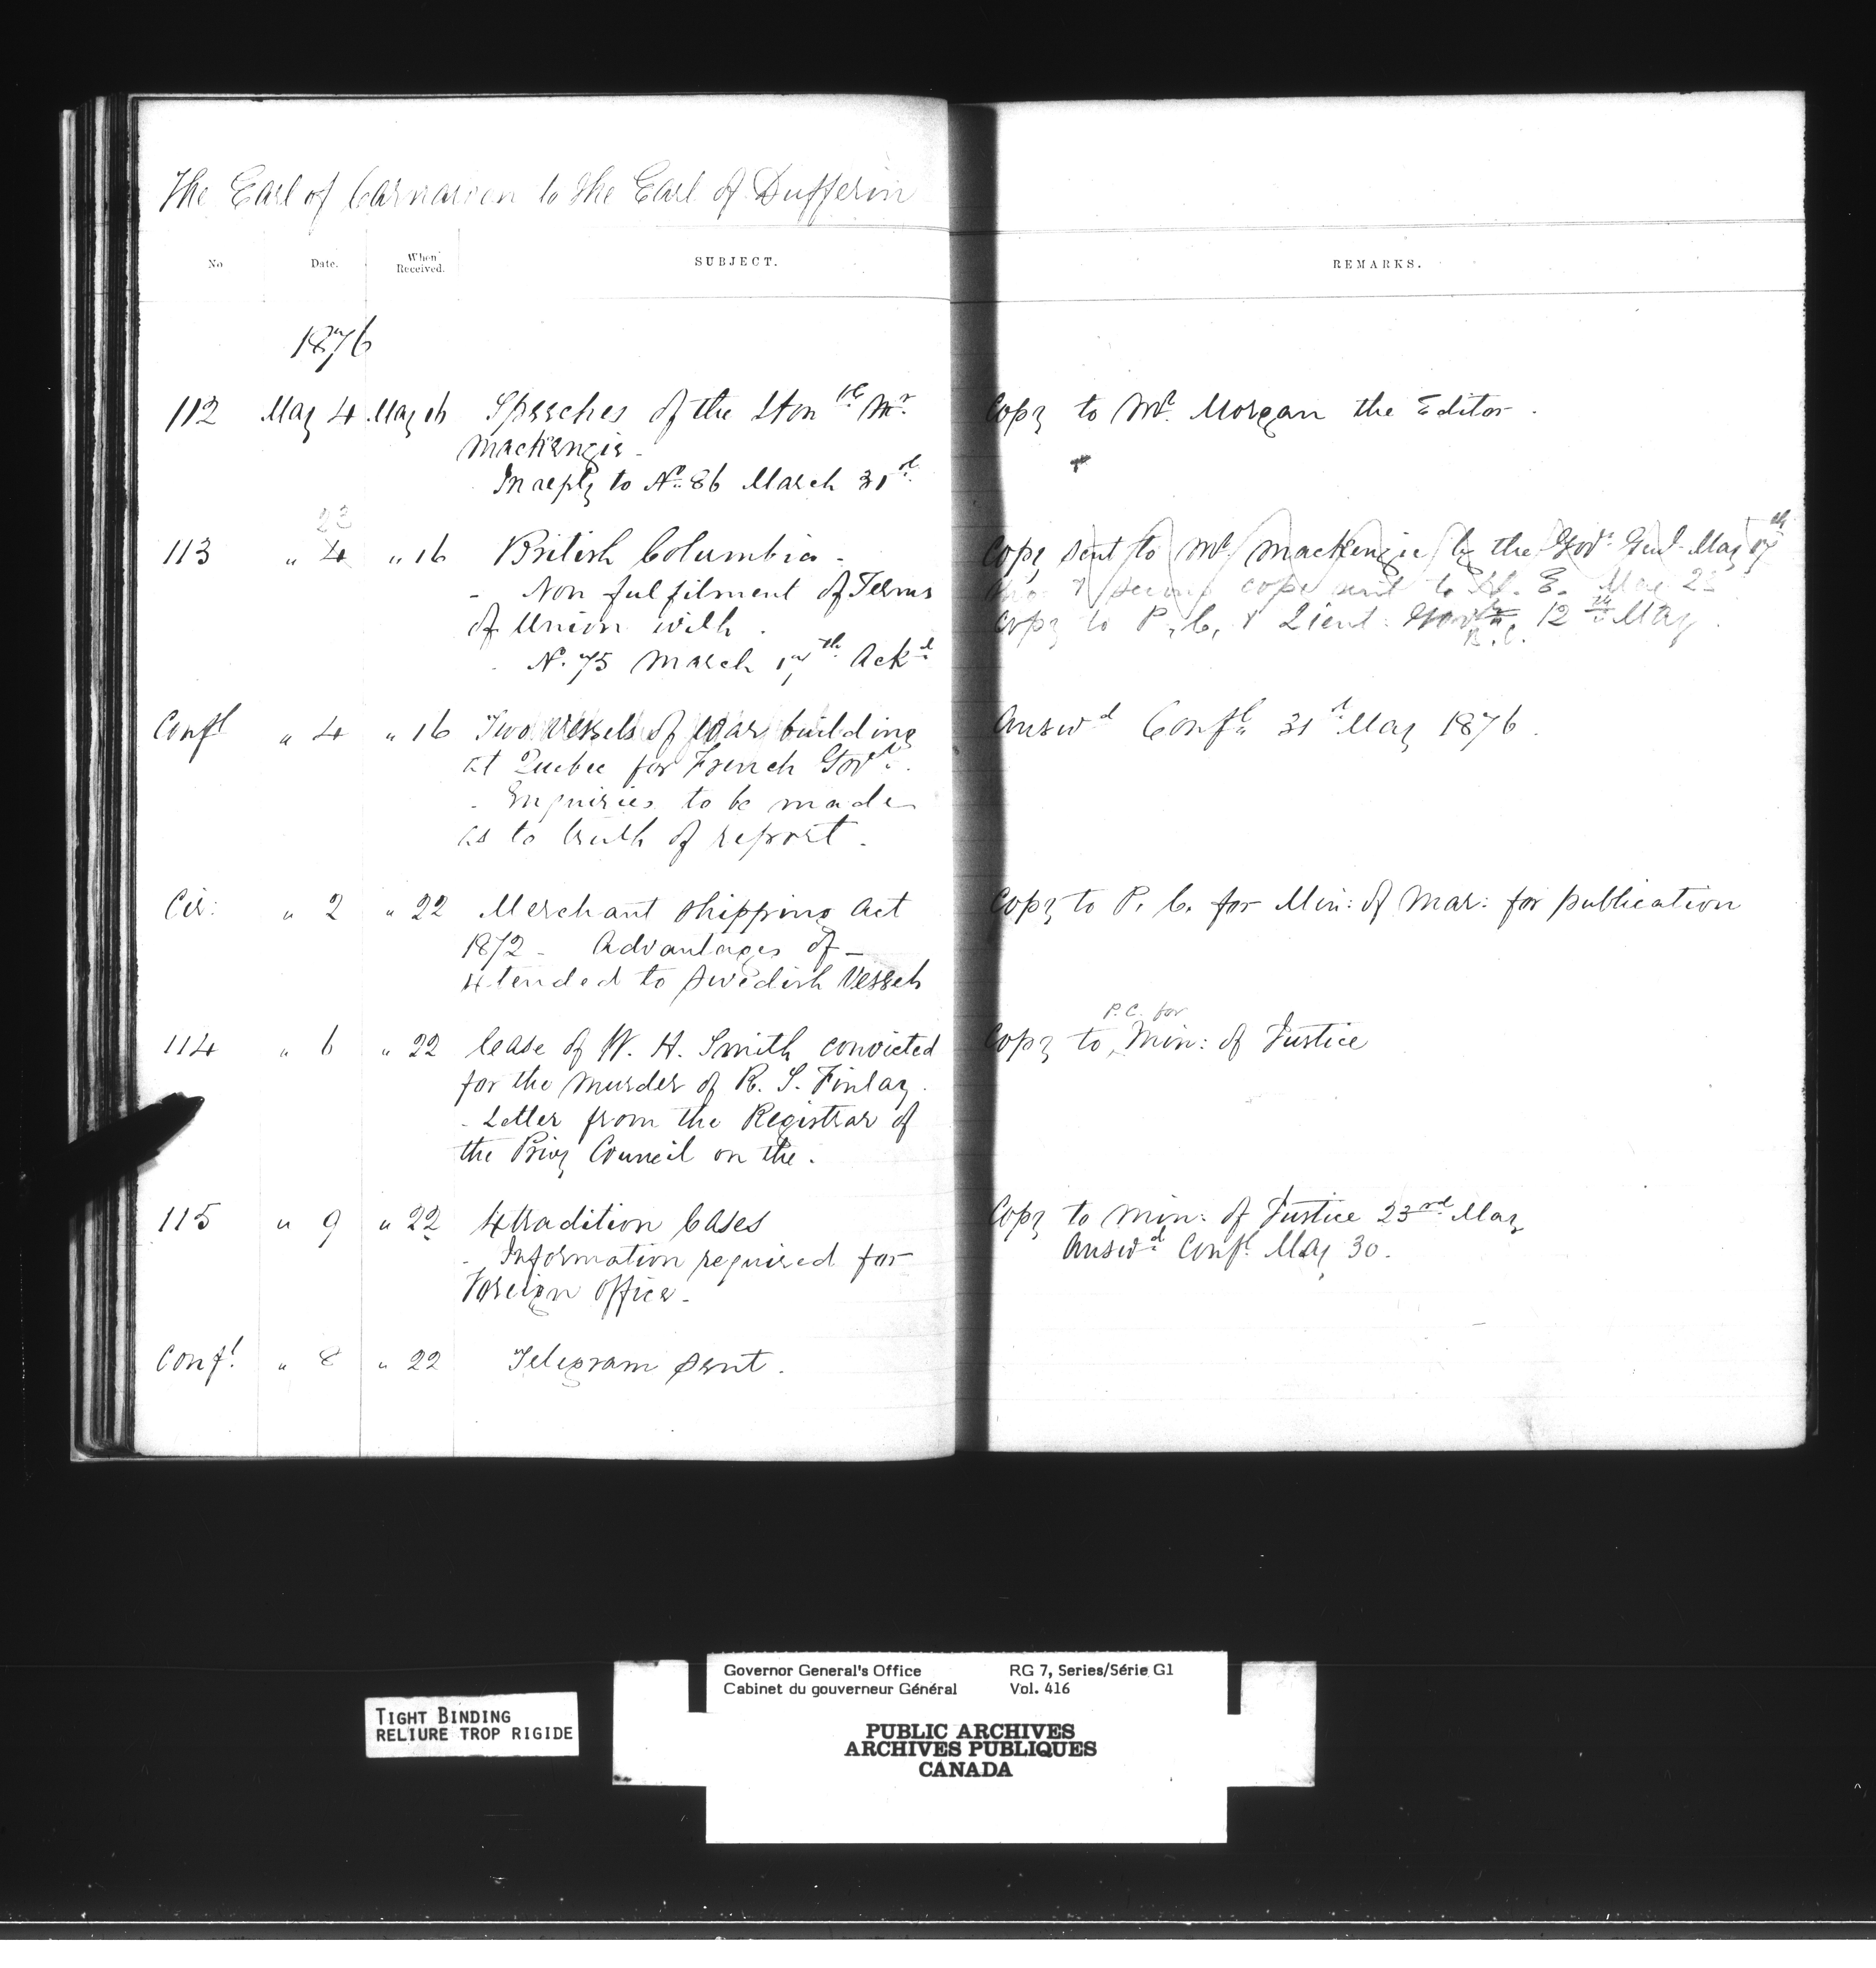 The Earl of Carnarvon to the Earl of Dufferin
No Date. When Received. SUBJECT. REMARKS.
1876
112 May 4 May 16 Speeches of the Honble Mr. Copy to Mr. Morgan the Editor.
Mackenzie -
In reply to No. 86 March 31st
23
113 " 4 " 16 British Columbia - Copy sent to Mr Mackenzie by the Govr Genl May 17th
- Non fulfilment of Terms second copy sent to H. E. May
of Union with. copy to P. C. & Lieut. Govr. 12th May.
B.C.
- No. 75 March 17th Ackd
Confl " 4 " 16 Two Vessels of War building Answd Confl 31st May 1876.
at Quebec for French Govt.
- Enquiries to be made
as to truth of report.
Cir: " 2 " 22 Merchant Shipping Act Copy to P. C. for Min: of Mar: for publication
1872 - Advantages of -
Xtended to Swedish Vessels
P.C. for
114 " 6 " 22 Case of W. H. Smith convicted Copy to Min: of Justice
for the murder of R. S. Finlay.
- Letter from the Registrar of
the Privy Council on the.
115 " 9 " 22 Xtradition Cases Copy to Min: of Justice 23rd May
- Information required for Answd Confl May 30.
Foreign Office -
Confl " 8 " 22 Telegram sent.
TIGHT BINDING
RELIURE TROP RIGIDE
Governor General's Office RG 7, Series/Série G1
Cabinet du gouverneur Général Vol. 416
PUBLIC ARCHIVES
ARCHIVES PUBLIQUES
CANADA